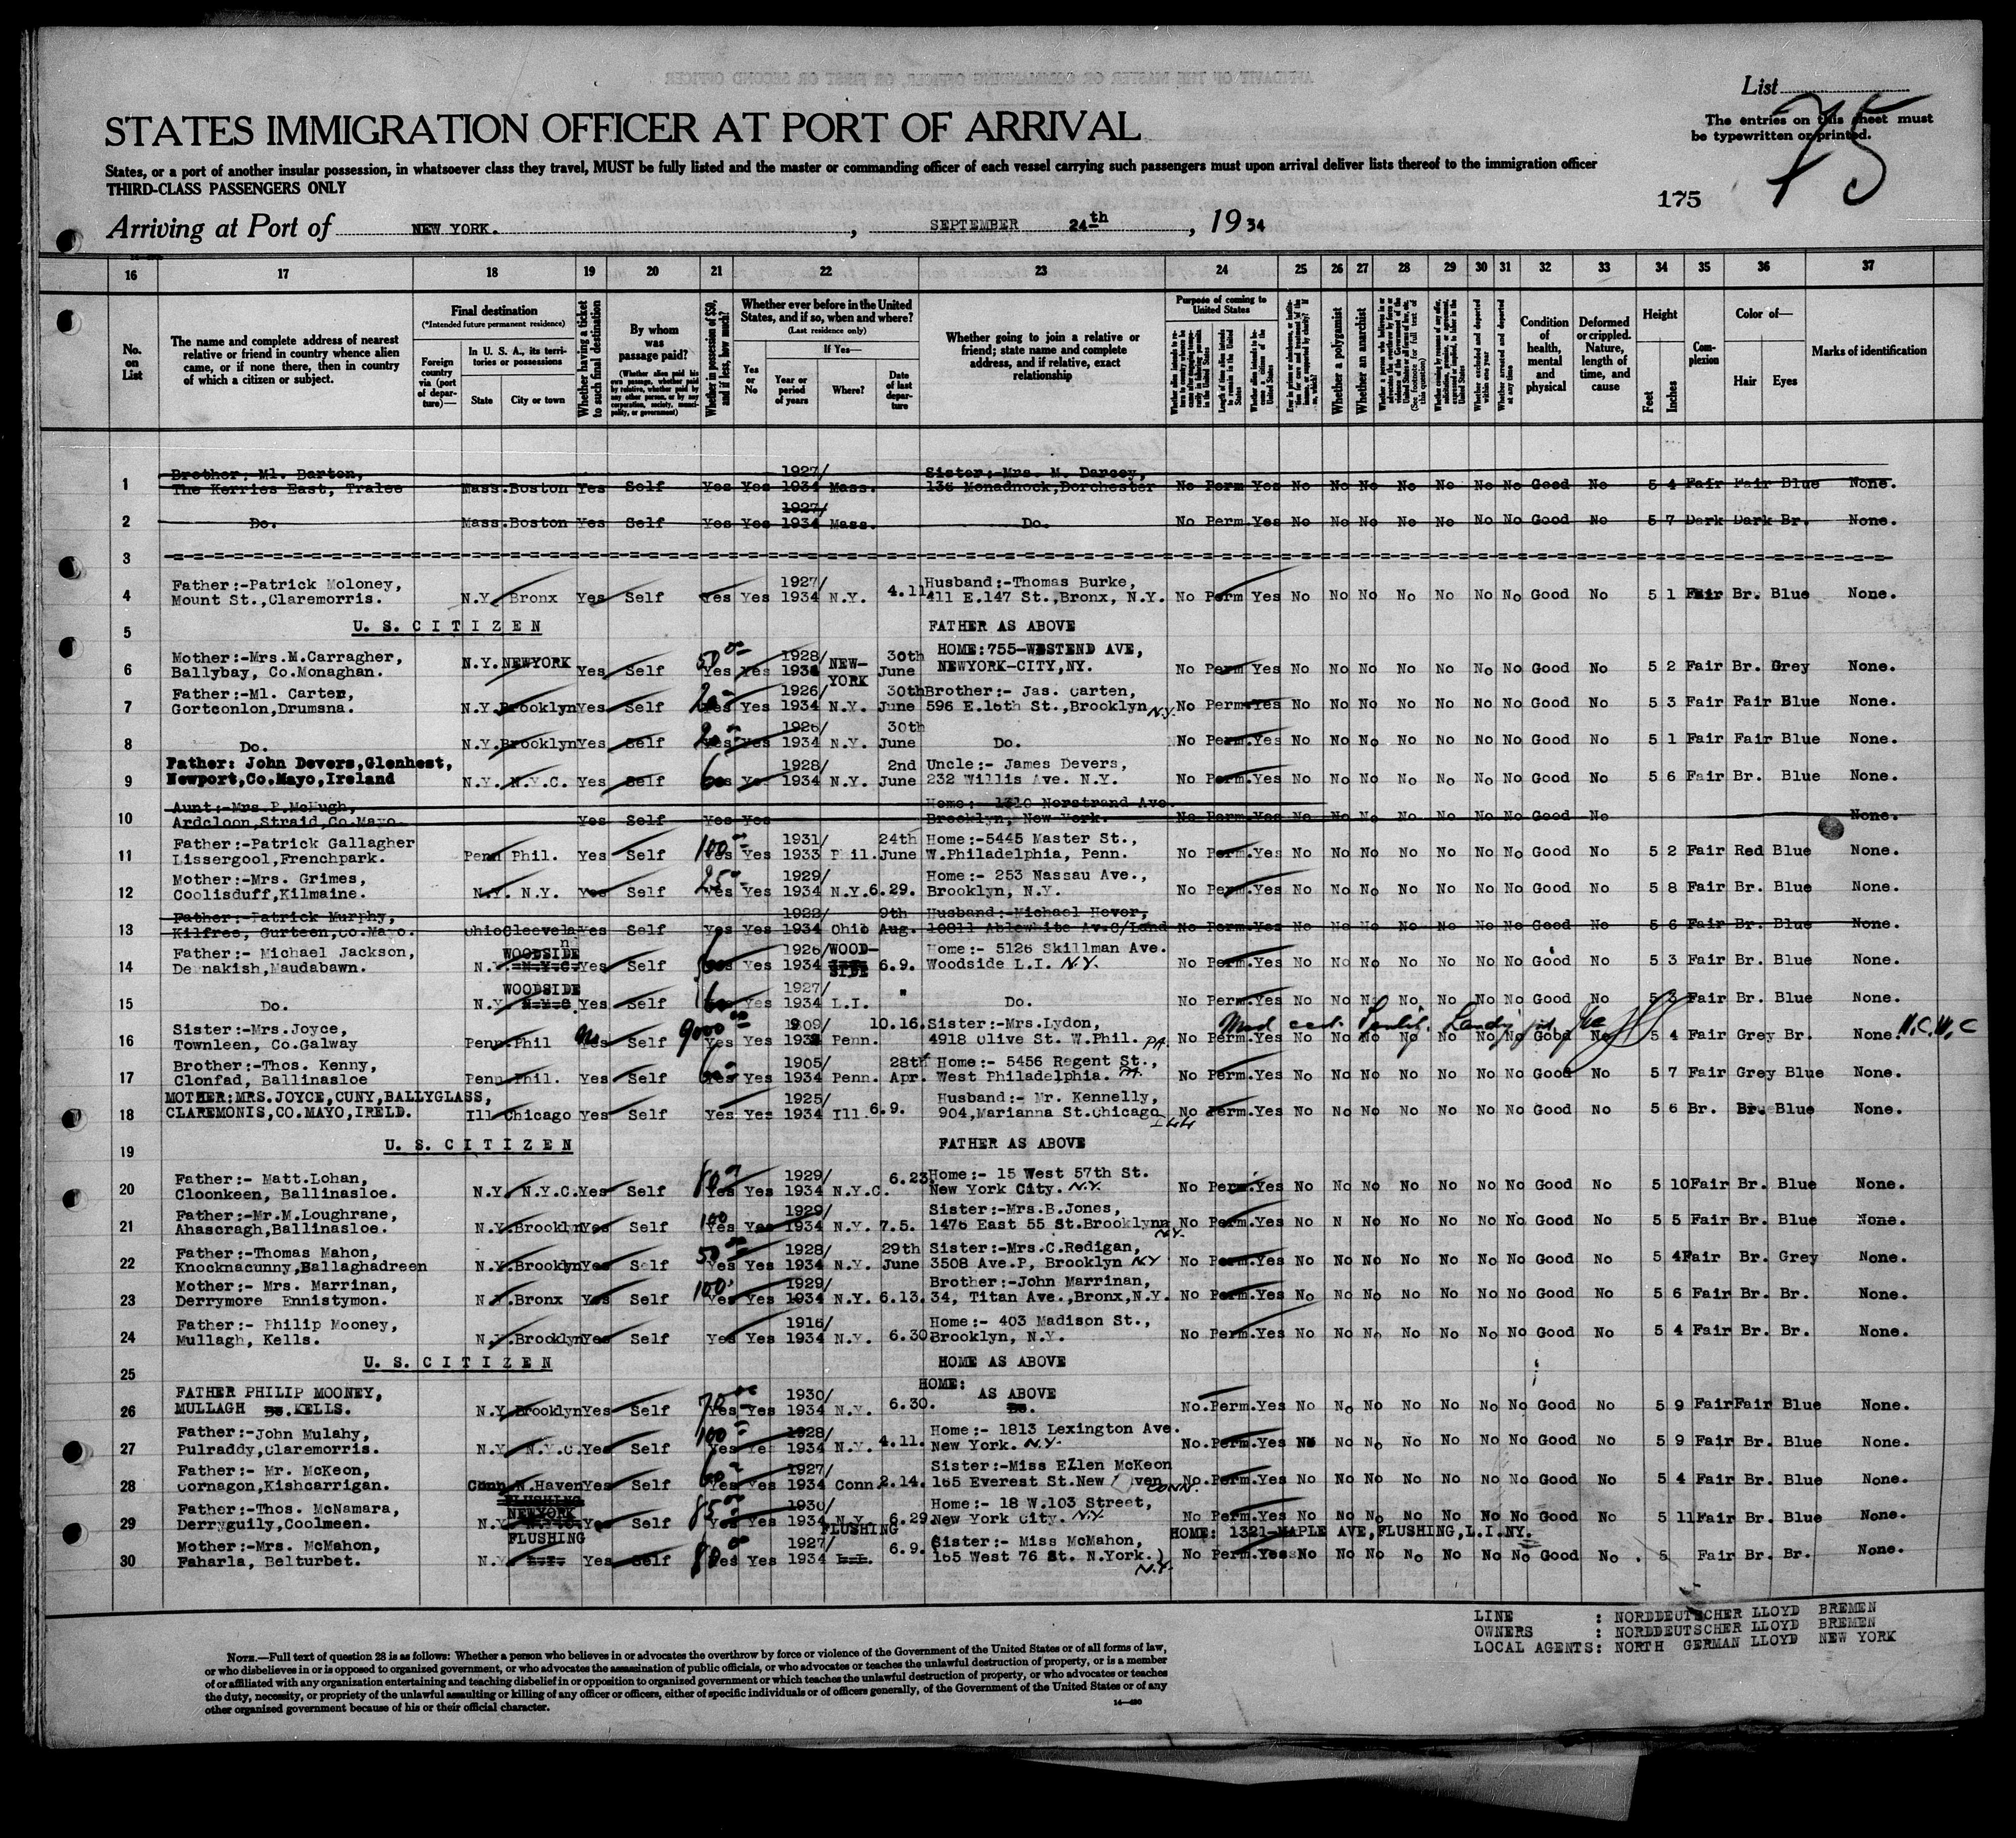 List
The entries on this sheet must
be typewritten or printed.
75
175
STATES IMMIGRATION OFFICER AT PORT OF ARRIVAL
States, or a port of another insular possession, in whatsoever class they travel, MUST be fully listed and the master or commanding officer of each vessel carrying such passengers must upon arrival deliver lists thereof to the immigration officer
THIRD-CLASS PASSENGERS ONLY
Arriving at Port of NEW YORK. , SEPTEMBER 24th , 19 34
16 17 18 19 20 21 22 23 24 25 26 27 28 29 30 31 32 33 34 35 36 37
No. on List
The name and complete address of nearest relative or friend in country whence alien came, or if none there, then in country of which a citizen or subject.
Final destination
(*Intended future permanent residence)
Foreign country via (port of departure)—
In U. S. A., its territories or possessions
State
City or town
Whether having a ticket to such final destination
By whom was passage paid?
(Whether alien paid his own passage, whether paid by relative, whether paid by any other person, or by any corporation, society, municipality, or government)
Whether in possession of $50, and if less, how much?
Whether ever before in the United States, and if so, when and where?
(Last residence only)
Yes or No
If Yes—
Year or period of years
Where?
Date of last departure
Whether going to join a relative or friend; state name and complete address, and if relative, exact relationship
Purpose of coming to United States
Whether a polygamist
Whether an anarchist
Condition of health, mental and physical
Deformed or crippled. Nature, length of time, and cause
Height
Feet
Inches
Complexion
Color of—
Hair
Eyes
Marks of identification
Brother; Ml. Barton, 1927/ Sister:-Mrs. M. Darcey,
1 The Kerries East, Tralee Mass. Boston Yes Self Yes Yes 1934 Mass. 136 Monadnock,Dorchester No Perm Yes No No No No No No No Good No 5 4 Fair Fair Blue None.
1927/
2 Do. Mass. Boston Yes Self Yes Yes 1934 Mass. Do. No Perm. Yes No No No No No No No Good No 5 7 Dark Dark Br. None.
3
Father:-Patrick Moloney, 1927/ Husband:-Thomas Burke,
4 Mount St.,Claremorris. N.Y. Bronx Yes Self Yes Yes 1934 N.Y. 4.11. 411 E.147 St.,Bronx, N.Y. No Perm Yes No No No No No No No Good No 5 1 Fair Br. Blue None.
5 U. S. C I T I Z E N FATHER AS ABOVE
Mother:-Mrs.M.Carragher, N.Y. NEWYORK 50 1928/ NEW- 30th HOME:755-WESTEND AVE,
6 Ballybay, Co.Monaghan. Yes Self Yes Yes 1934 YORK June NEWYORK-CITY,NY. No Perm Yes No No No No No No No Good No 5 2 Fair Br. Grey None.
Father:-Ml. Carten, 1926/ 30th Brother:- Jas. Carten,
7 Gortconlon,Drumsna. N.Y. Brooklyn Yes Self Yes Yes 1934 N.Y. June 596 E.16th St.,Brooklyn N.Y. No Perm. Yes No No No No No No No Good No 5 3 Fair Fair Blue None.
1926/ 30th
8 Do. N.Y. Brooklyn Yes Self Yes Yes 1934 N.Y. June Do. No Perm. Yes No No No No No No No Good No 5 1 Fair Fair Blue None.
Father: John Devers,Glenhest, 1928/ 2nd Uncle:- James Devers,
9 Newport,Co.Mayo,Ireland N.Y. N.Y.C. Yes Self Yes 1934 N.Y. June 232 Willis Ave. N.Y. No Perm. Yes No No No No No No No Good No 5 6 Fair Br. Blue None.
Aunt:-Mrs.P.McHugh, Home:- 1310 Norstrand Ave.
10 Ardcloon,Straid,Co.Mayo. Yes Self Yes Yes Brooklyn, New York. No Perm Yes No No No No No No No Good No None.
Father:-Patrick Gallagher 100 1931/ 24th Home:-5445 Master St.,
11 Lissergool,Frenchpark. Penn Phil. Yes Self Yes Yes 1933 Phil. June W.Philadelphia, Penn. No Perm. Yes No No No No No No No Good No 5 2 Fair Red Blue None.
Mother:-Mrs. Grimes, 25 1929/ Home:- 253 Nassau Ave.,
12 Coolisduff,Kilmaine. N.Y. N.Y. Yes Self Yes Yes 1934 N.Y. 6.29. Brooklyn, N.Y. No Perm. Yes No No No No No No No Good No 5 8 Fair Br. Blue None.
Father:-Patrick Murphy, 1922/ 9th Husband:-Michael Hever,
13 Kilfree, Gurteen,Co.Mayo. Ohio Cleveland Yes Self Yes Yes 1934 Ohio Aug. 10811 Ablewhite Av.C/Land No Perm. Yes No No No No No No No Good No 5 6 Fair Br. Blue None.
Father:- Michael Jackson, WOODSIDE 1926/ WOOD- Home:- 5126 Skillman Ave.
14 Dernakish,Maudabawn. N.Y. N.Y.C. Yes Self Yes 1934 SIDE 6.9. Woodside L.I. N.Y. No Perm. Yes No No No No No No No Good No 5 3 Fair Br. Blue None.
WOODSIDE 1927/ "
15 Do. N.Y. N.Y.C. Yes Self Yes 1934 L.I. Do. No Perm. Yes No No No No No No No Good No 5 3 Fair Br. Blue None.
Sister:-Mrs.Joyce, 9000 1909/ 10.16. Sister:-Mrs.Lydon, Med cert.
16 Townleen, Co.Galway Penn. Phil Yes Self Yes Yes Penn. 4918 Olive St. W.Phil. PA. No Perm. Yes No No No No No No No Good No 5 4 Fair Grey Br. None.
Brother:-Thos. Kenny, 1905/ 28th Home:- 5456 Regent St.,
17 Clonfad, Ballinasloe Penn. Phil. Yes Self Yes Yes 1934 Penn. Apr. West Philadelphia. PA. No Perm. Yes No No No No No No No Good No 5 7 Fair Grey Blue None.
MOTHER:MRS.JOYCE,CUNY,BALLYGLASS, 1925/ Husband:- Mr. Kennelly,
18 CLAREMONIS,CO.MAYO,IRELD. Ill Chicago Yes Self Yes Yes 1934 Ill. 6.9. 904,Marianna St.Chicago ILL No Perm. Yes No No No No No No No Good No 5 6 Br. Blue None.
19 U. S. C I T I Z E N FATHER AS ABOVE
Father:- Matt.Lohan, 80 1929/ 6.23. Home:- 15 West 57th St.
20 Cloonkeen, Ballinasloe. N.Y. N.Y.C. Yes Self Yes Yes 1934 N.Y.C. New York City. N.Y. No Perm. Yes No No No No No No No Good No 5 10 Fair Br. Blue None.
Father:-Mr.M.Loughrane, 100 1929/ Sister:-Mrs.B.Jones,
21 Ahascragh,Ballinasloe. N.Y. Brooklyn Yes Self Yes Yes 1934 N.Y. 7.5. 1476 East 55 St.Brooklynn N.Y. No Perm. Yes No N No No No No No Good No 5 5 Fair Br. Blue None.
Father:-Thomas Mahon, 50 1928/ 29th Sister:-Mrs.C.Redigan,
22 Knocknacunny,Ballaghadreen N.Y. Brooklyn Yes Self Yes Yes 1934 N.Y. June 3508 Ave.P, Brooklyn NY No Perm. Yes No No No No No No No Good No 5 4 Fair Br. Grey None.
Mother:- Mrs. Marrinan, 100 1929/ Brother:-John Marrinan,
23 Derrymore Ennistymon. N.Y. Bronx Yes Self Yes Yes 1934 N.Y. 6.13. 34, Titan Ave.,Bronx,N.Y. No Perm. Yes No No No No No No No Good No 5 6 Fair Br. Br. None.
Father:- Philip Mooney, 1916/ Home:- 403 Madison St.,
24 Mullagh, Kells. N.Y. Brooklyn Yes Self Yes Yes 1934 N.Y. 6.30. Brooklyn, N.Y. No Perm. Yes No No No No No No No Good No 5 4 Fair Br. Br. None.
25 U. S. C I T I Z E N HOME AS ABOVE
FATHER PHILIP MOONEY, 70 1930/ HOME: AS ABOVE
26 MULLAGH Do. KELLS. N.Y. Brooklyn Yes Self Yes Yes 1934 N.Y. 6.30. Do. No. Perm. Yes No No No No No No No Good No 5 9 Fair Fair Blue None.
Father:-John Mulahy, 100 1928/ Home:- 1813 Lexington Ave.
27 Pulraddy,Claremorris. N.Y. N.Y.C. Yes Self Yes Yes 1934 N.Y. 4.11. New York. N.Y. No. Perm. Yes No No No No No No No Good No 5 9 Fair Br. Blue None.
Father:- Mr. McKeon, 1927/ Sister:-Miss Ellen McKeon
28 Cornagon,Kishcarrigan. Conn. N.Haven Yes Self Yes Yes 1934 Conn. 2.14. 165 Everest St.New ven CONN. No. Perm. Yes No No No No No No No Good No 5 4 Fair Br. Blue None.
Father:-Thos. McNamara, FLUSHING NEWYORK 85 1930/ Home:- 18 W.103 Street,
29 Derryguily,Coolmeen. N.Y. Yes Self Yes Yes 1934 N.Y. 6.29. New York City. N.Y. No Perm. Yes No No No No No No No Good No 5 11 Fair Br. Blue None.
Mother:-Mrs. McMahon, FLUSHING 80 1927/ FLUSHING 6.9. (Sister:- Miss McMahon, HOME: 1321-MAPLE AVE,FLUSHING,L.I.NY.
30 Faharla, Belturbet. N.Y. L.I. Yes Self Yes Yes 1934 L.I. 165 West 76 St. N.York.) N.Y. No Perm. Yes No No No No No No No Good No. 5 Fair Br. Br. None.
LINE : NORDDEUTSCHER LLOYD BREMEN
OWNERS : NORDDEUTSCHER LLOYD BREMEN
LOCAL AGENTS: NORTH GERMAN LLOYD NEW YORK
NOTE.—Full text of question 28 is as follows: Whether a person who believes in or advocates the overthrow by force or violence of the Government of the United States or of all forms of law,
or who disbelieves in or is opposed to organized government, or who advocates the assassination of public officials, or who advocates or teaches the unlawful destruction of property, or is a member
of or affiliated with any organization entertaining and teaching disbelief in or opposition to organized government or which teaches the unlawful destruction of property, or who advocates or teaches
the duty, necessity, or propriety of the unlawful assaulting or killing of any officer or officers, either of specific individuals or of officers generally, of the Government of the United States or of any
other organized government because of his or their official character.
14—490